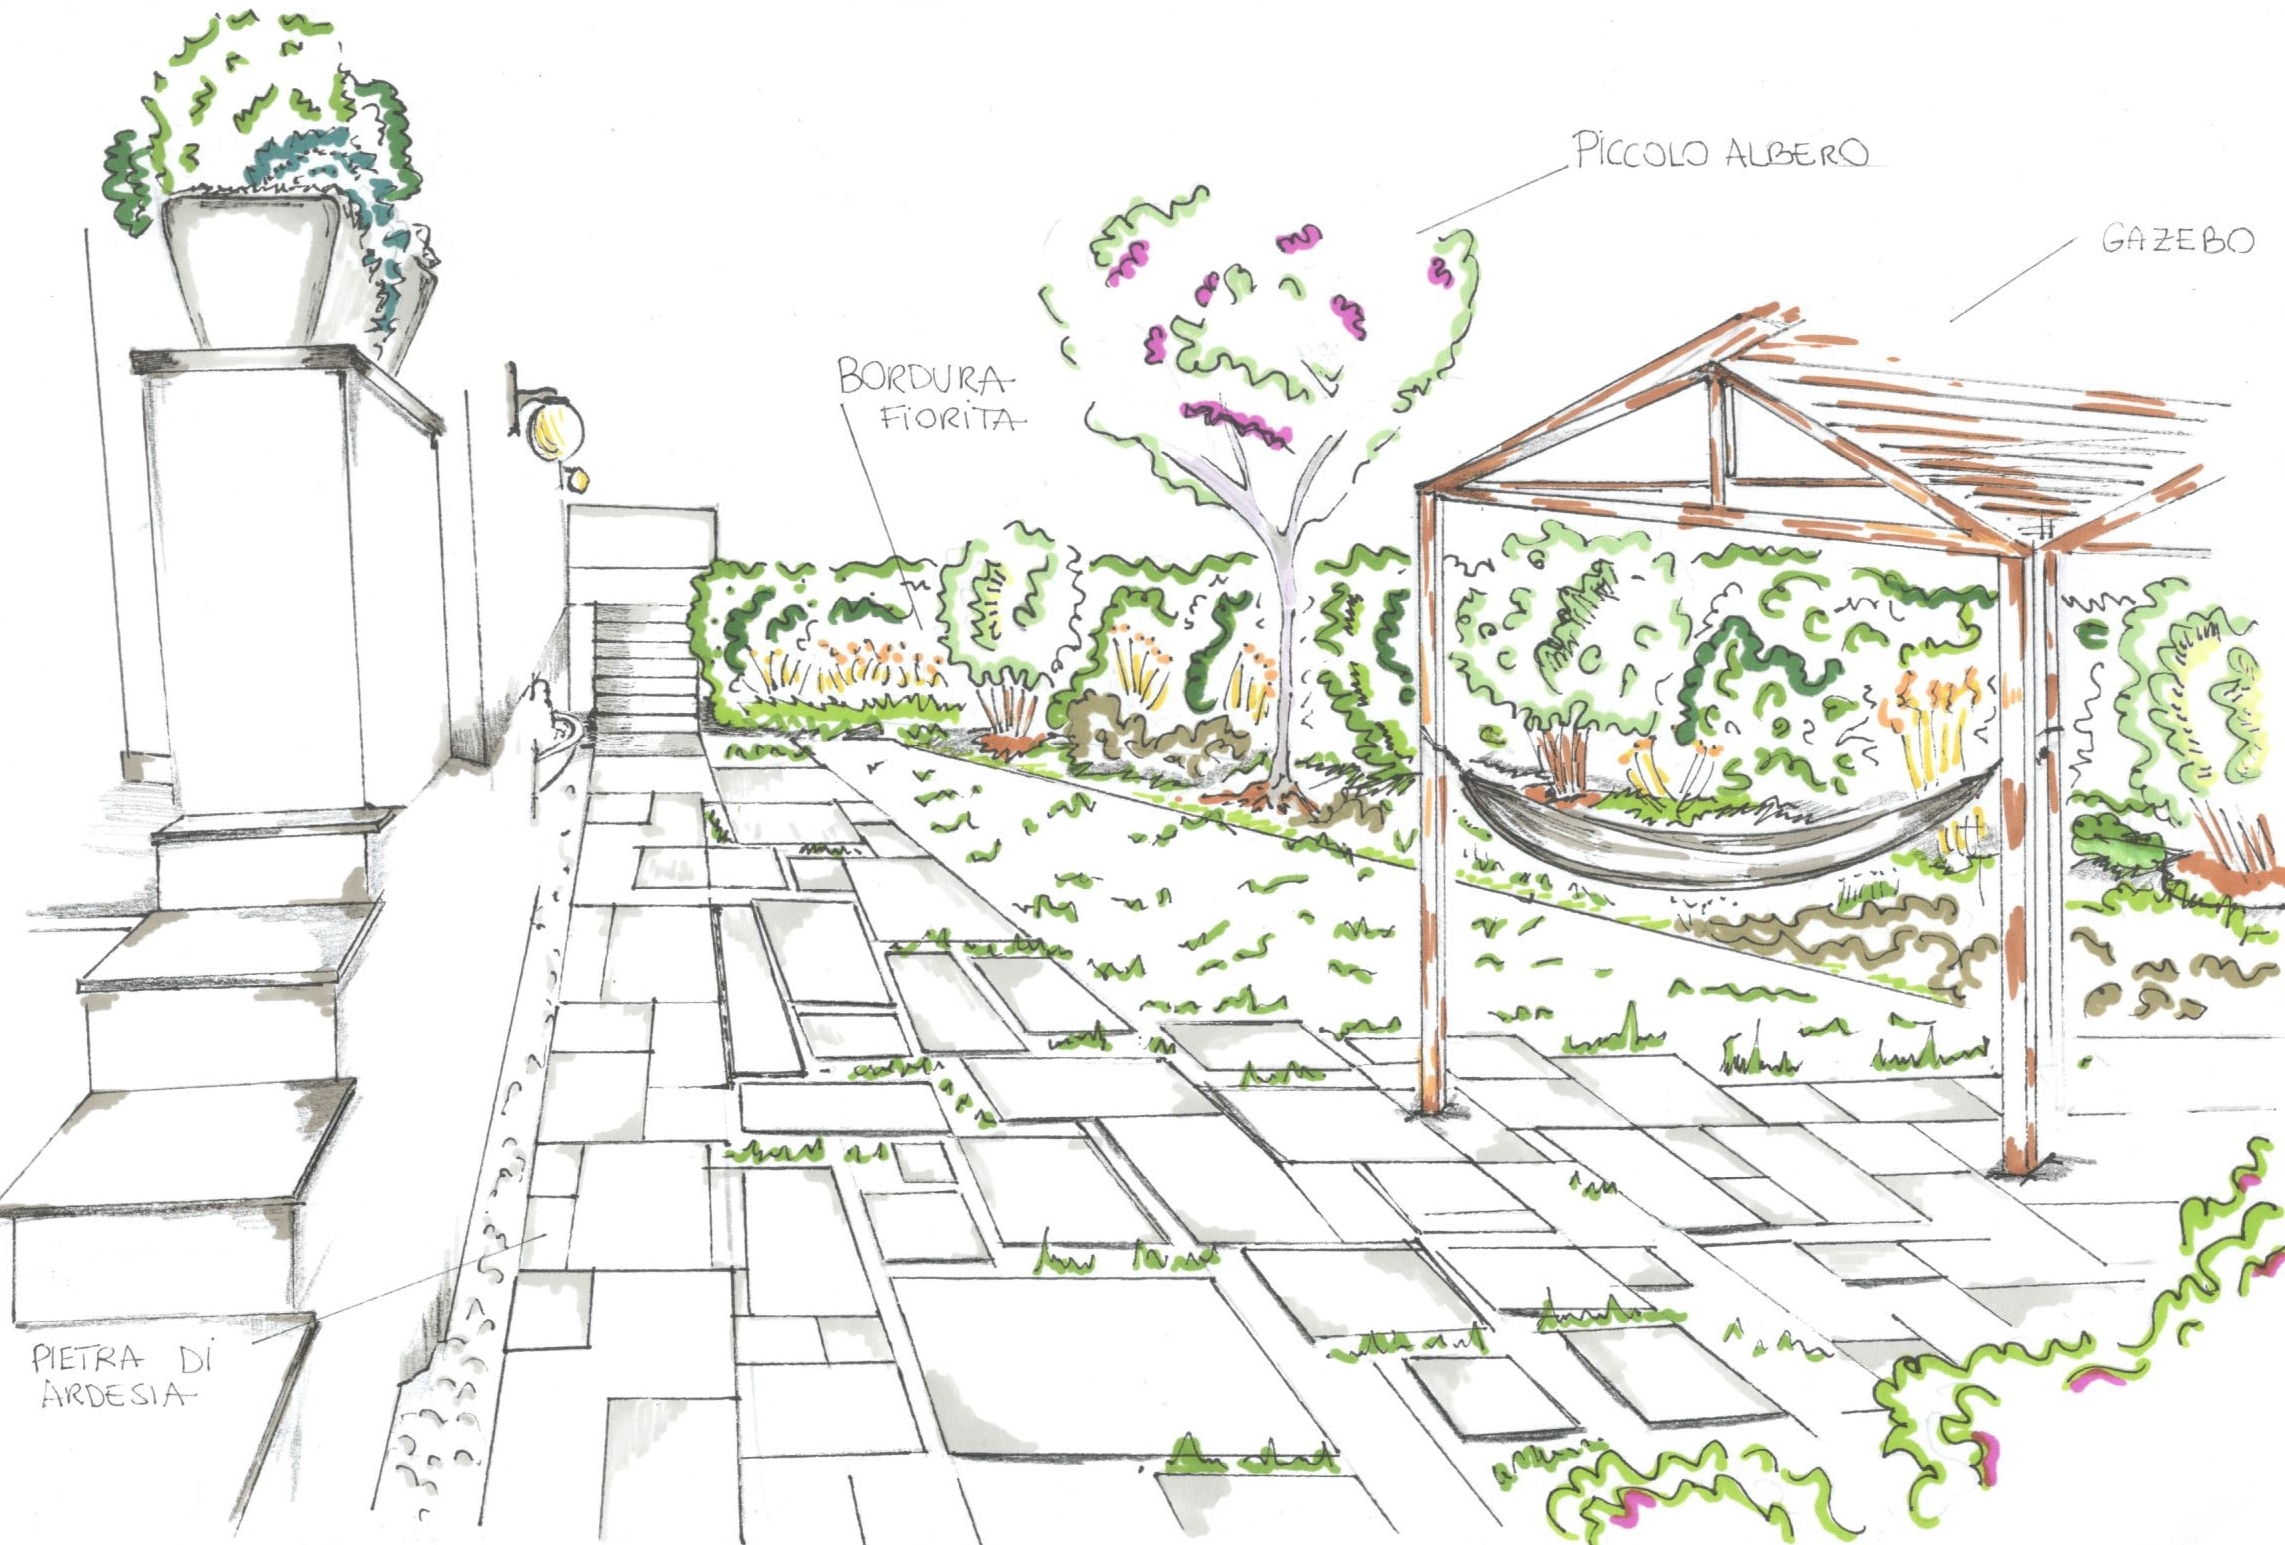 PICCOLO ALBERO
GAZEBO
BORDURA
FIORITA
PIETRA DI
ARDESIA